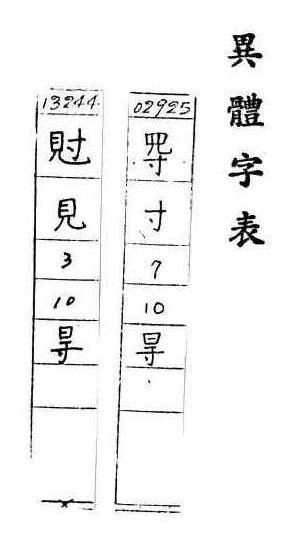 異體字表
02925
寸
7
10
㝵
13244
見
3
10
㝵